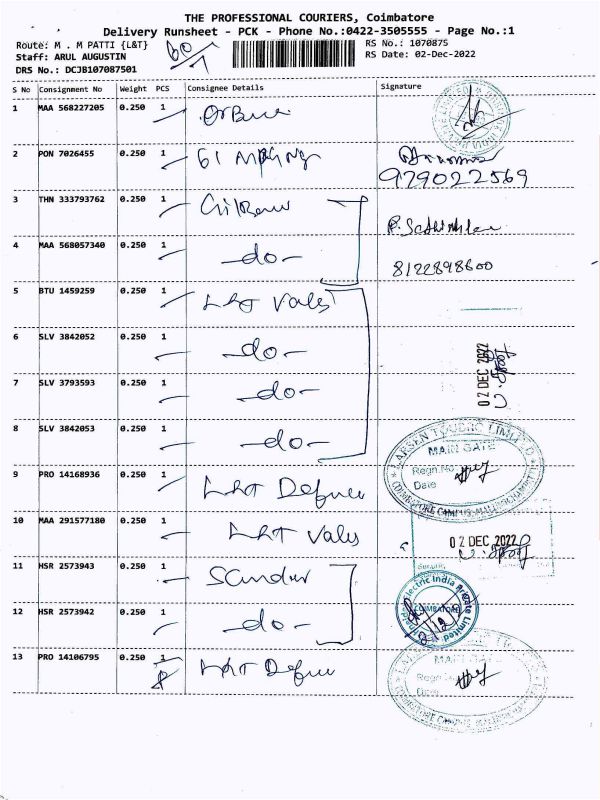 THE PROFESSIONAL COURIERS, Coimbatore
Delivery Runsheet - PCK - Phone No.:0422-3505555 - Page No.:1
Route: M . M PATTI {L&T}
RS No.: 1070875
Staff: ARUL AUGUSTIN
RS Date: 02-Dec-2022
DRS No.: DCJB107087501
S No Consignment No Weight PCS Consignee Details Signature
1 MAA 568227205 0.250 1
2 PON 7026455 0.250 1 61
979022569
3 THN 333793762 0.250 1
4 MAA 568057340 0.250 1 -do-
8122898600
5 BTU 1459259 0.250 1 L&T Valves
6 SLV 3842052 0.250 1 -do-
02 DEC 2022
7 SLV 3793593 0.250 1 -do-
8 SLV 3842053 0.250 1 -do-
LARSEN TOUBRO LIMITED
MAIN GATE
Regn.No
Date
COIMBATORE CAMPUS,
9 PRO 14168936 0.250 1 L&T Defence
10 MAA 291577180 0.250 1 L&T Valves
02 DEC 2022
11 HSR 2573943 0.250 1
Electric India Private Limited
COIMBATORE
12 HSR 2573942 0.250 1 -do-
13 PRO 14106795 0.250 1 L&T Defence
MAIN GATE
Regn
Date
COIMBATORE CAMPUS,